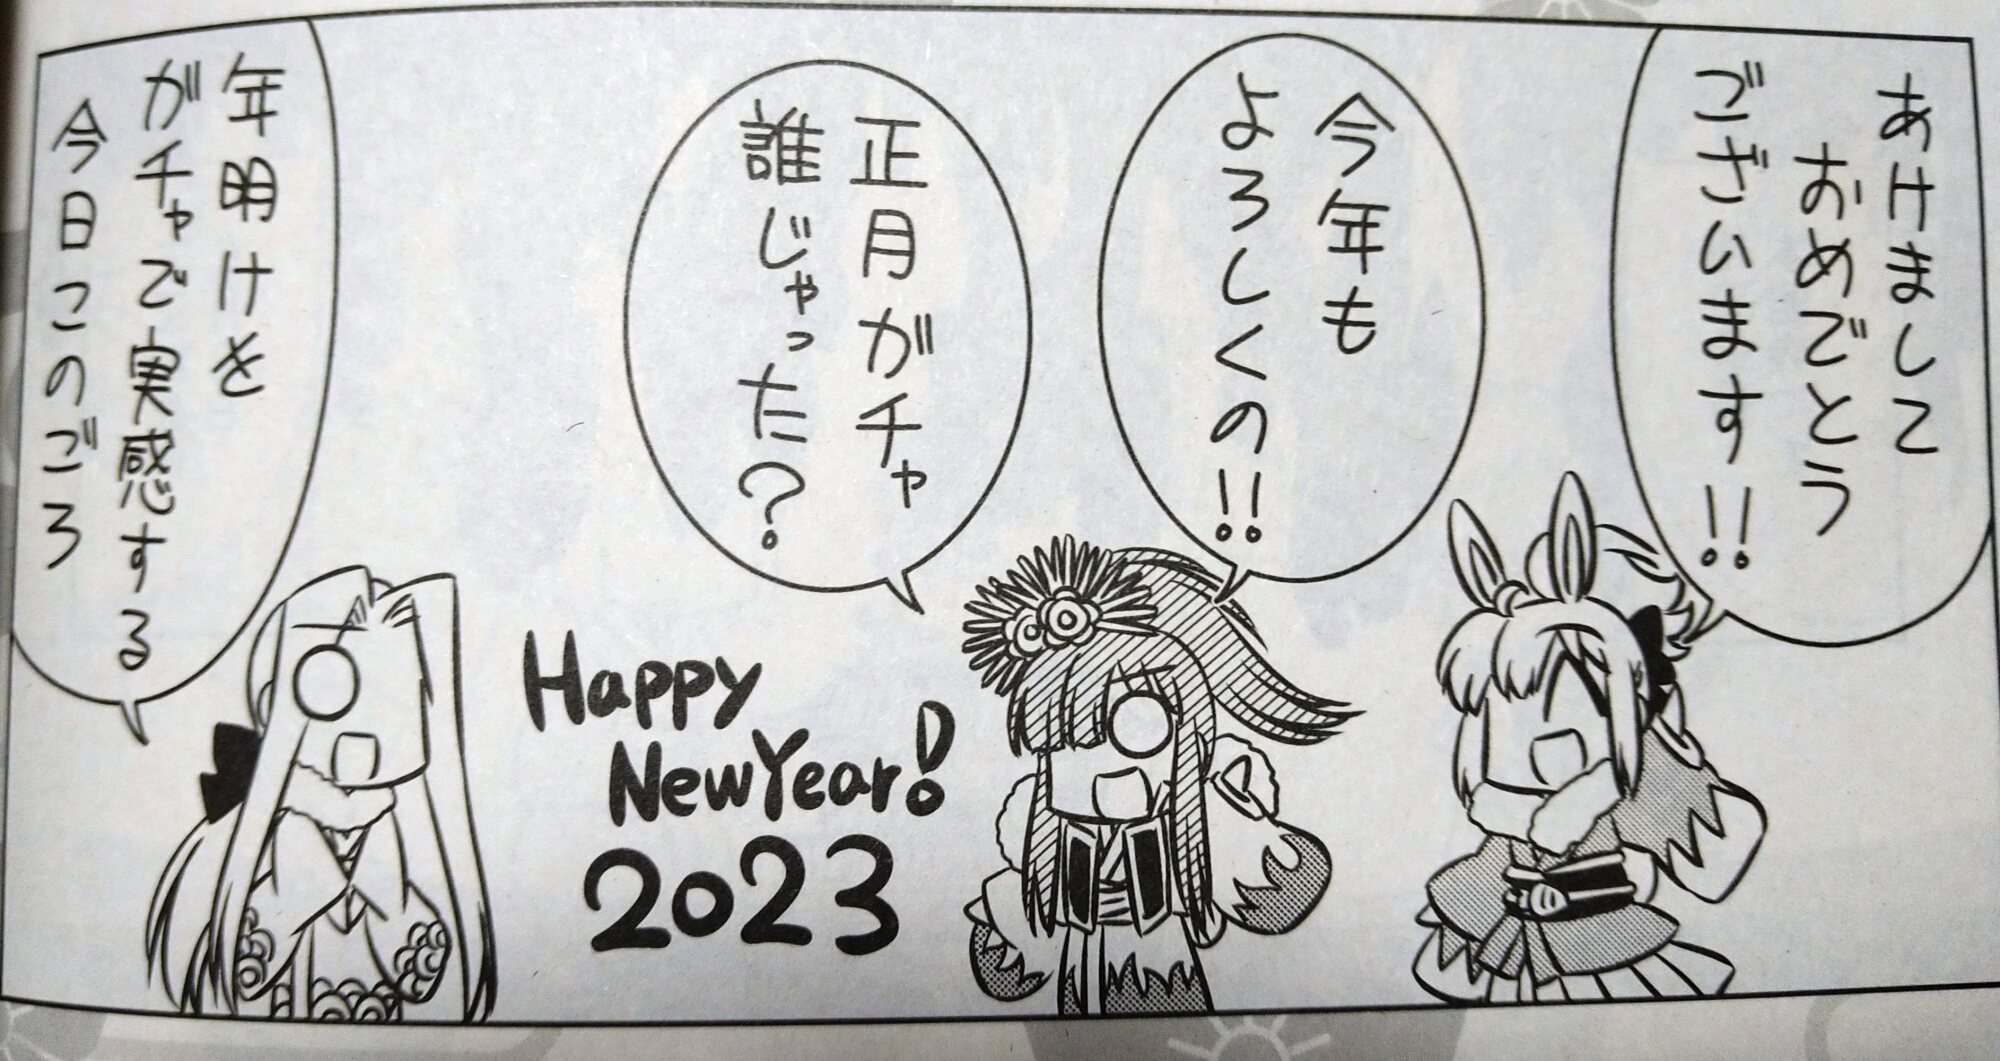 あけまして
おめでとう
ございます!!
今年も
よろしくの!!
正月ガチャ
誰じゃった?
Happy
New Year!
2023
年明けを
ガチャで実感する
今日このごろ